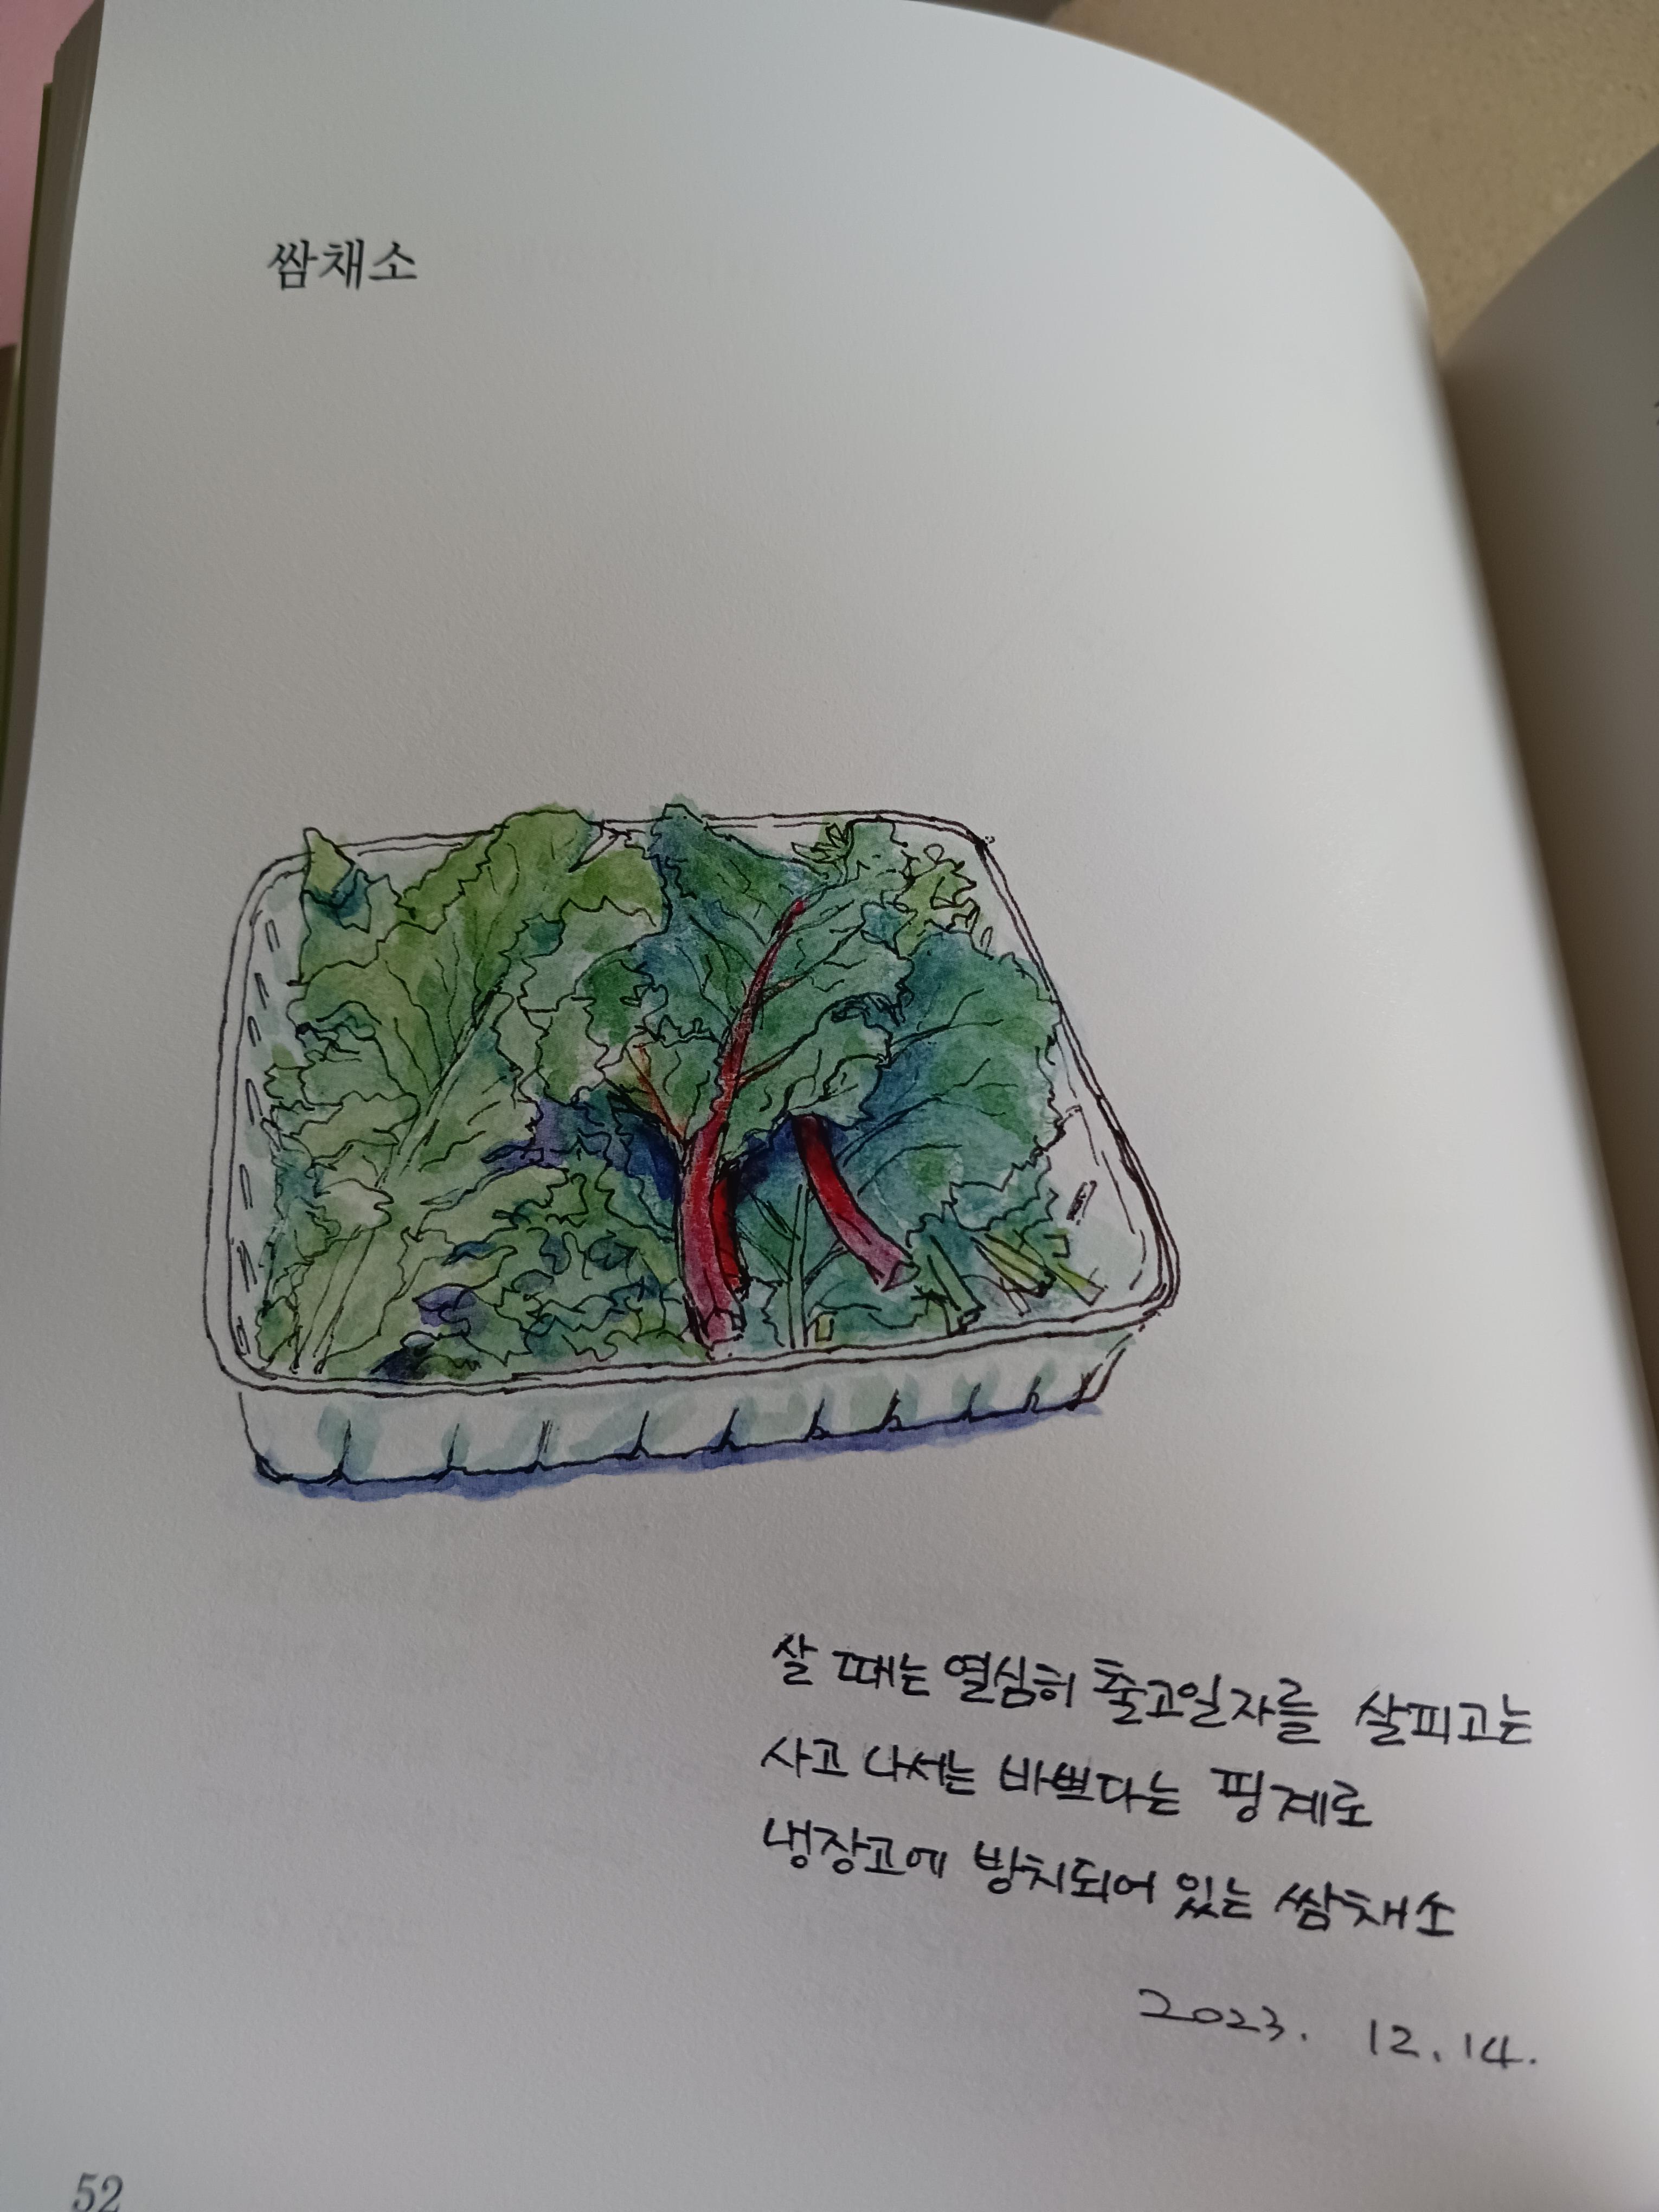 쌈채소
살 때는 열심히 출고일자를 살피고는
사고 나서는 바쁘다는 핑계로
냉장고에 방치되어 있는 쌈채소
2023. 12. 14.
52